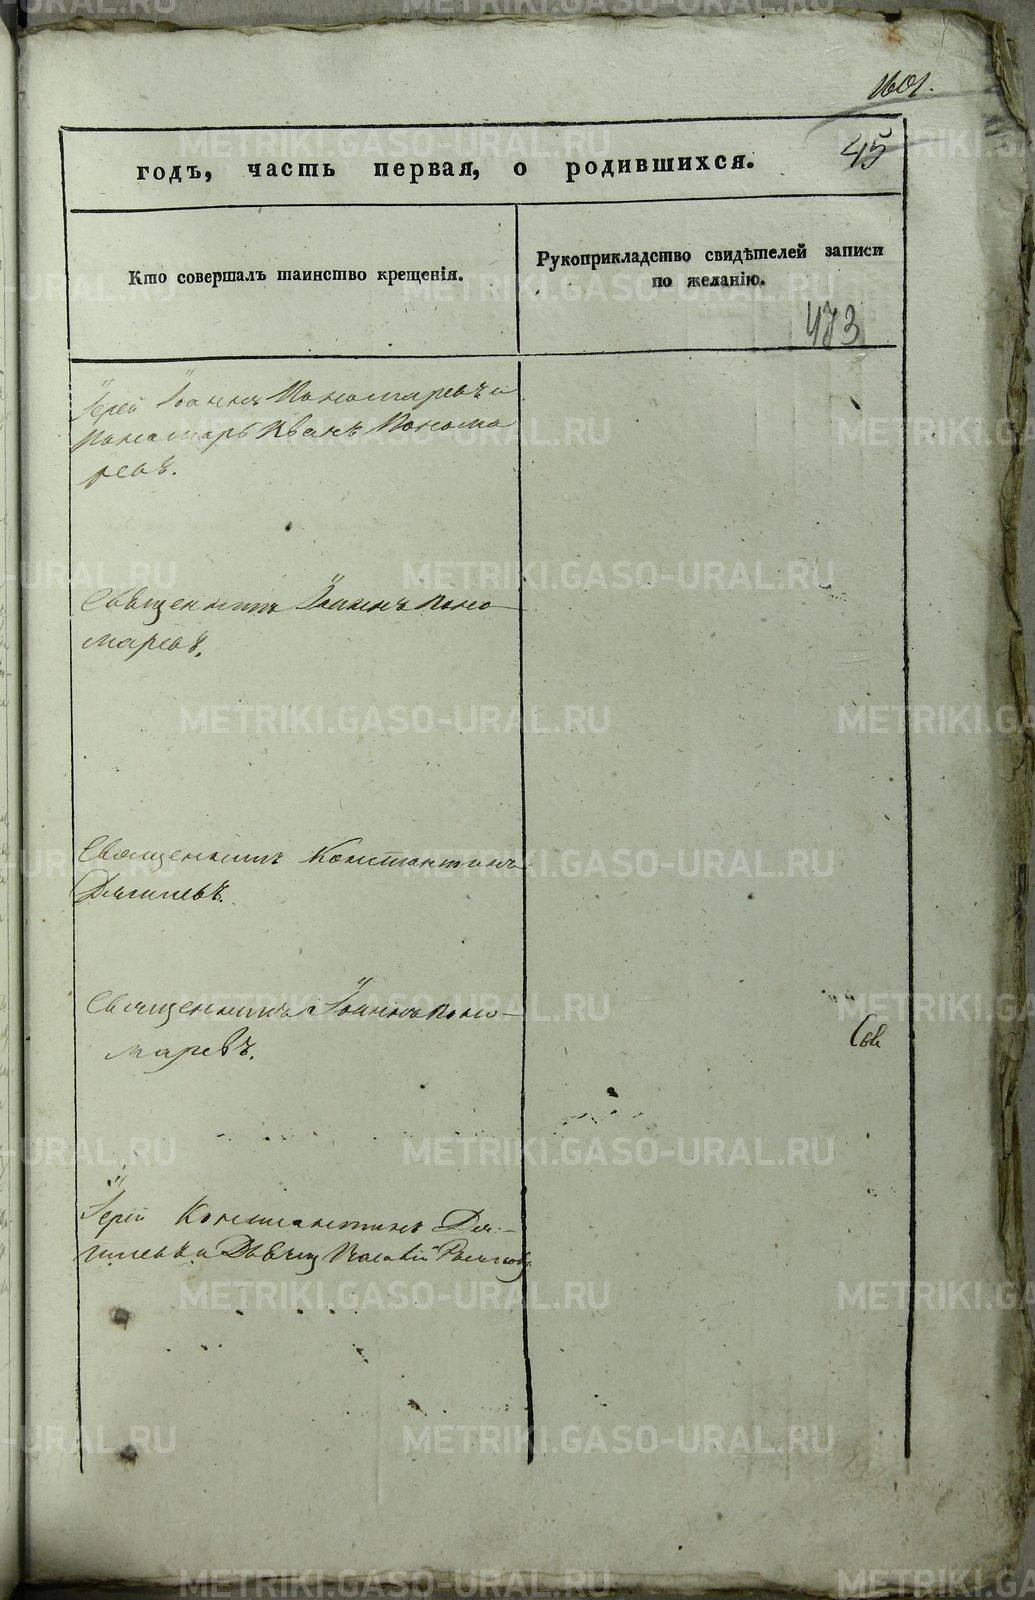 1601.
45
годъ, часть первая, о родившихся.
Кто совершалъ таинство крещенія.
Рукоприкладство свидѣтелей записи
по желанію.
473
Іерей Іоаннъ Пономаревъ и
Пономарь Иванъ Понома
ревъ.
Священникъ Іоаннъ Поно-
маревъ.
Священникъ Константинъ
Дягилевъ.
Священникъ Іоаннъ Поно-
маревъ.
Іерей Константинъ Дя-
гилевъ и
METRIKI.GASO-URAL.RU